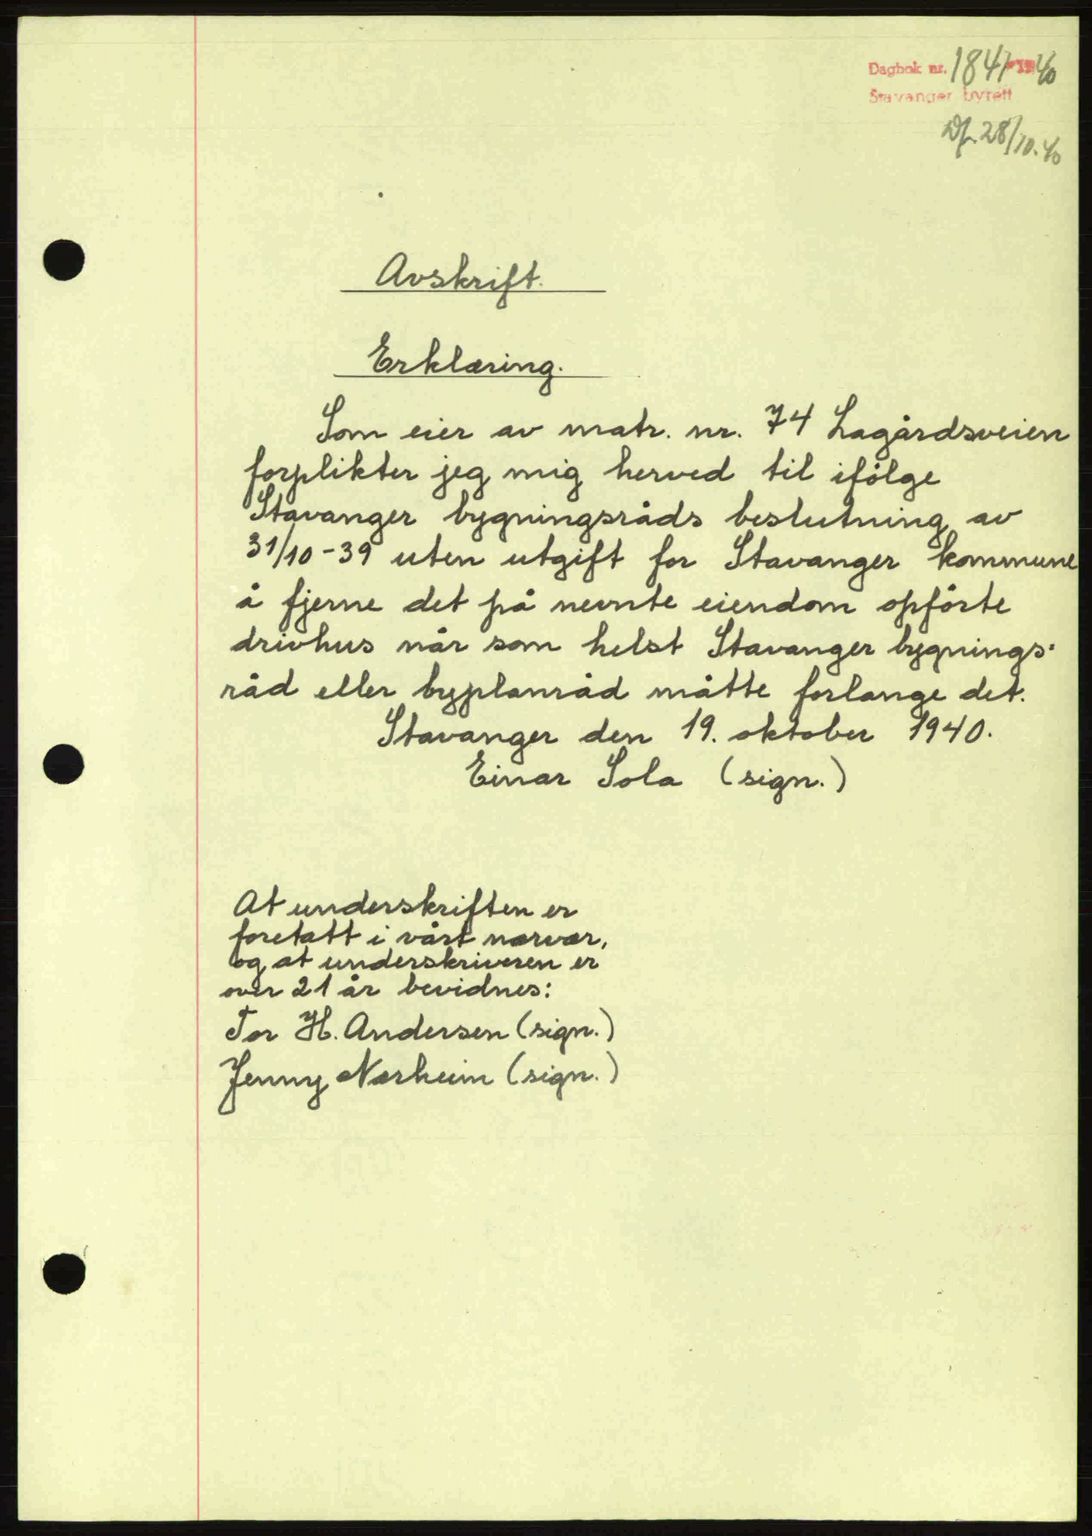 Dagbok nr. 1841 40
Stavanger byrett
Df. 28/10.40
Avskrift.
Erklæring.
Som eier av matr. nr. 74 Lagårdsveien
forplikter jeg mig herved til ifölge
Stavanger bygningsråds beslutning av
31/10-39 uten utgift for Stavanger kommune
å fjerne det på nevnte eiendom opförte
drivhus når som helst Stavanger bygnings-
råd eller byplanråd måtte forlange det.
Stavanger den 19. oktober 1940.
Einar Sola (sign.)
At underskriften er
foretatt i vårt nærvær,
og at underskriveren er
over 21 år bevidnes:
Tor H. Andersen (sign.)
Jenny Nærheim (sign.)